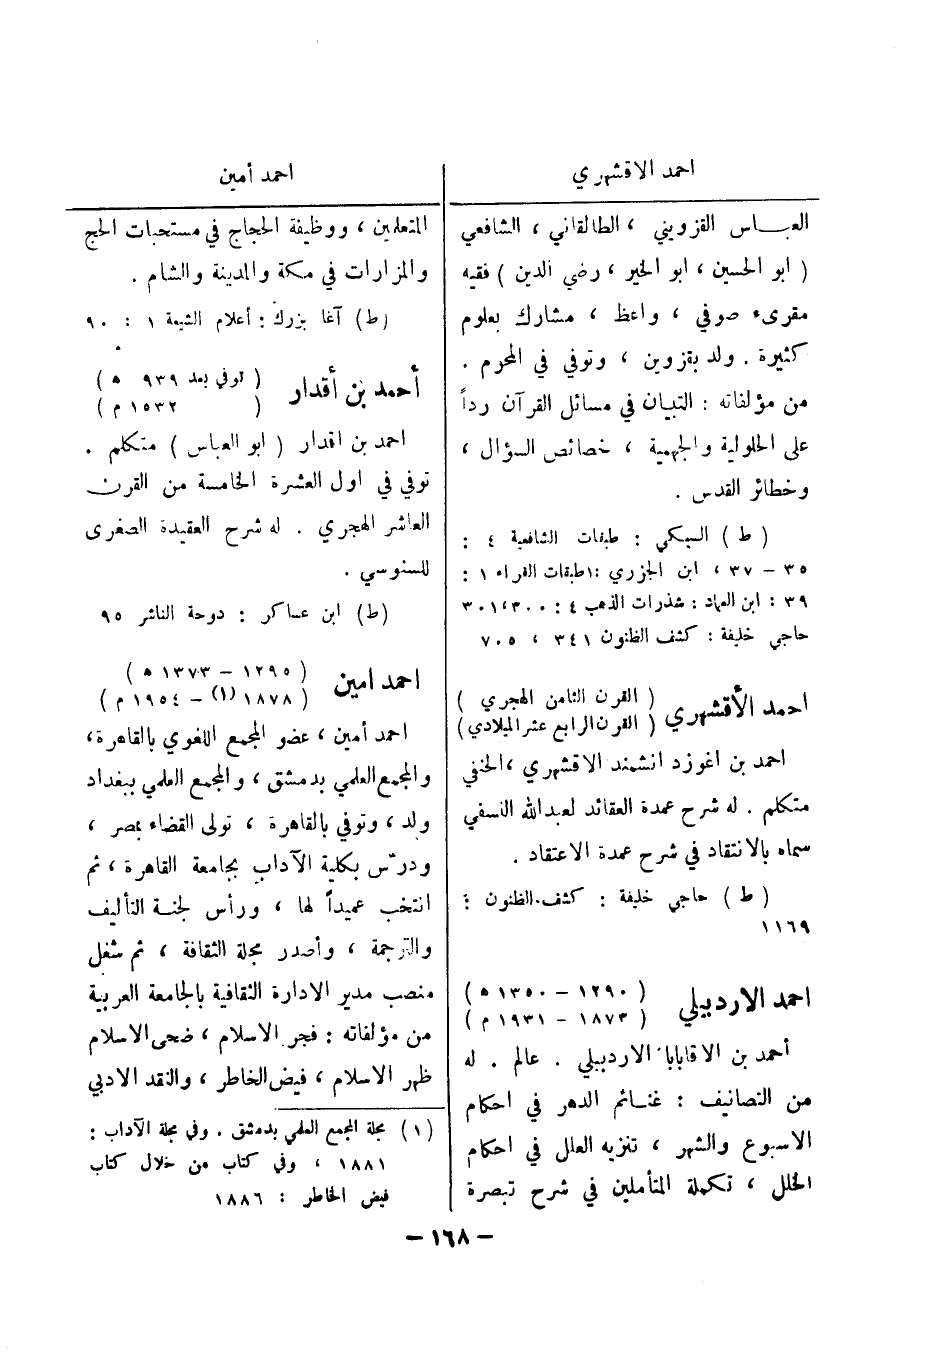 احمد الاقشهري
العباس القزويني ، الطالقاني ، الشافعي
( ابو الحسين ، ابو الخير ، رضي الدين ) فقيه
مقرىء صوفي ، واعظ ، مشارك بعلوم
كثيرة . ولد بقزوين ، وتوفي في المحرم .
من مؤلفاته : التبيان في مسائل القرآن رداً
على الحلولية والجهمية ، خصائص السؤال ،
وخطائر القدس .
( ط ) السبكي : طبقات الشافعية ٤ :
٣٥ – ٣٧ ، ابن الجزري : طبقات القراء ١ :
٣٩ : ابن العماد : شذرات الذهب ٤ : ٣٠٠،٣٠١
حاجي خليفة : كشف الظنون ٣٤١ ، ٧٠٥
احمد الأقشهري ( القرن الثامن الهجري )
( القرن الرابع عشر الميلادي )
احمد بن اغوزد انشمند الاقشهري ، الحنفي
متكلم . له شرح عمدة العقائد لعبدالله النسفي
سماه بالانتقاد في شرح عمدة الاعتقاد .
( ط ) حاجي خليفة : كشف الظنون :
١١٦٩
احمد الاردبيلي ( ١٢٩٠ – ١٣٥٠ ه )
( ١٨٧٣ – ١٩٣١ م )
أحمد بن الاقابابا الاردبيلي . عالم . له
من التصانيف : غنائم الدهر في احكام
الاسبوع والشهر ، تنزيه العلل في احكام
الخلل ، تكملة المتأملين في شرح تبصرة
احمد أمين
المتعلمين ، ووظيفة الحجاج في مستحبات الحج
والمزارات في مكة والمدينة والشام .
(ط) آغا بزرك : أعلام الشيعة ١ : ٩٠
أحمد بن أقدار ( توفي بعد ٩٣٩ ه )
( ١٥٣٢ م )
احمد بن اقدار ( ابو العباس ) متكلم .
توفي في اول العشرة الخامسة من القرن
العاشر الهجري . له شرح العقيدة الصغرى
للسنوسي .
(ط) ابن عساكر : دوحة الناشر ٩٥
احمد امين ( ١٢٩٥ – ١٣٧٣ ه )
( ١٨٧٨ (١) – ١٩٥٤ م )
احمد أمين ، عضو المجمع اللغوي بالقاهرة،
والمجمع العلمي بدمشق ، والمجمع العلمي ببغداد
ولد ، وتوفي بالقاهرة ، تولى القضاء بمصر ،
ودرّس بكلية الآداب بجامعة القاهرة ، ثم
انتخب عميداً لها ، ورأس لجنة التأليف
والترجمة ، وأصدر مجلة الثقافة ، ثم شغل
منصب مدير الادارة الثقافية بالجامعة العربية
من مؤلفاته : فجر الاسلام ، ضحى الاسلام
ظهر الاسلام ، فيض الخاطر ، والنقد الادبي
(١) مجلة المجمع العلمي بدمشق . وفي مجلة الآداب :
١٨٨١ ، وفي كتاب من خلال كتاب
فيض الخاطر : ١٨٨٦
– ١٦٨ –